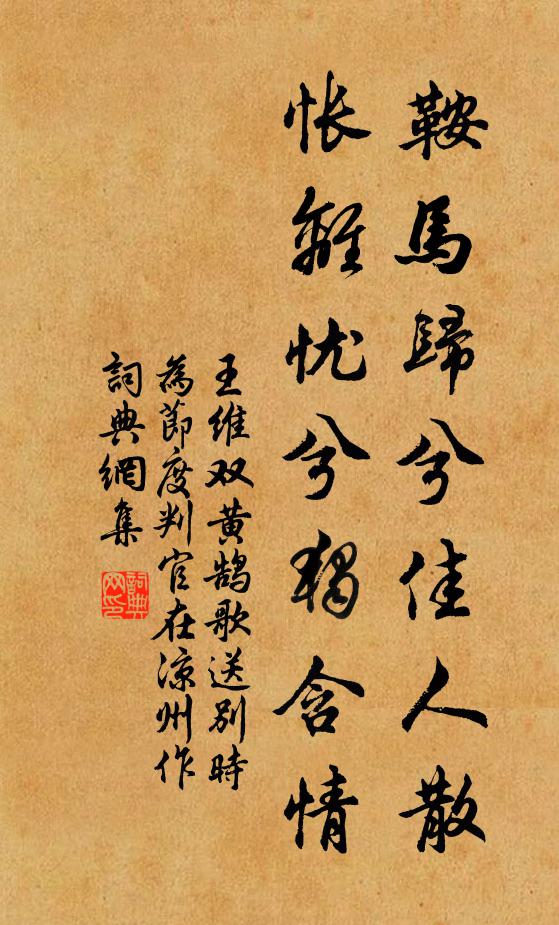 鞍馬歸兮佳人散
悵離忧兮獨含情
王維双黄鵠歌送别時
為節度判官在涼州作
詞典網集
詞典
网印